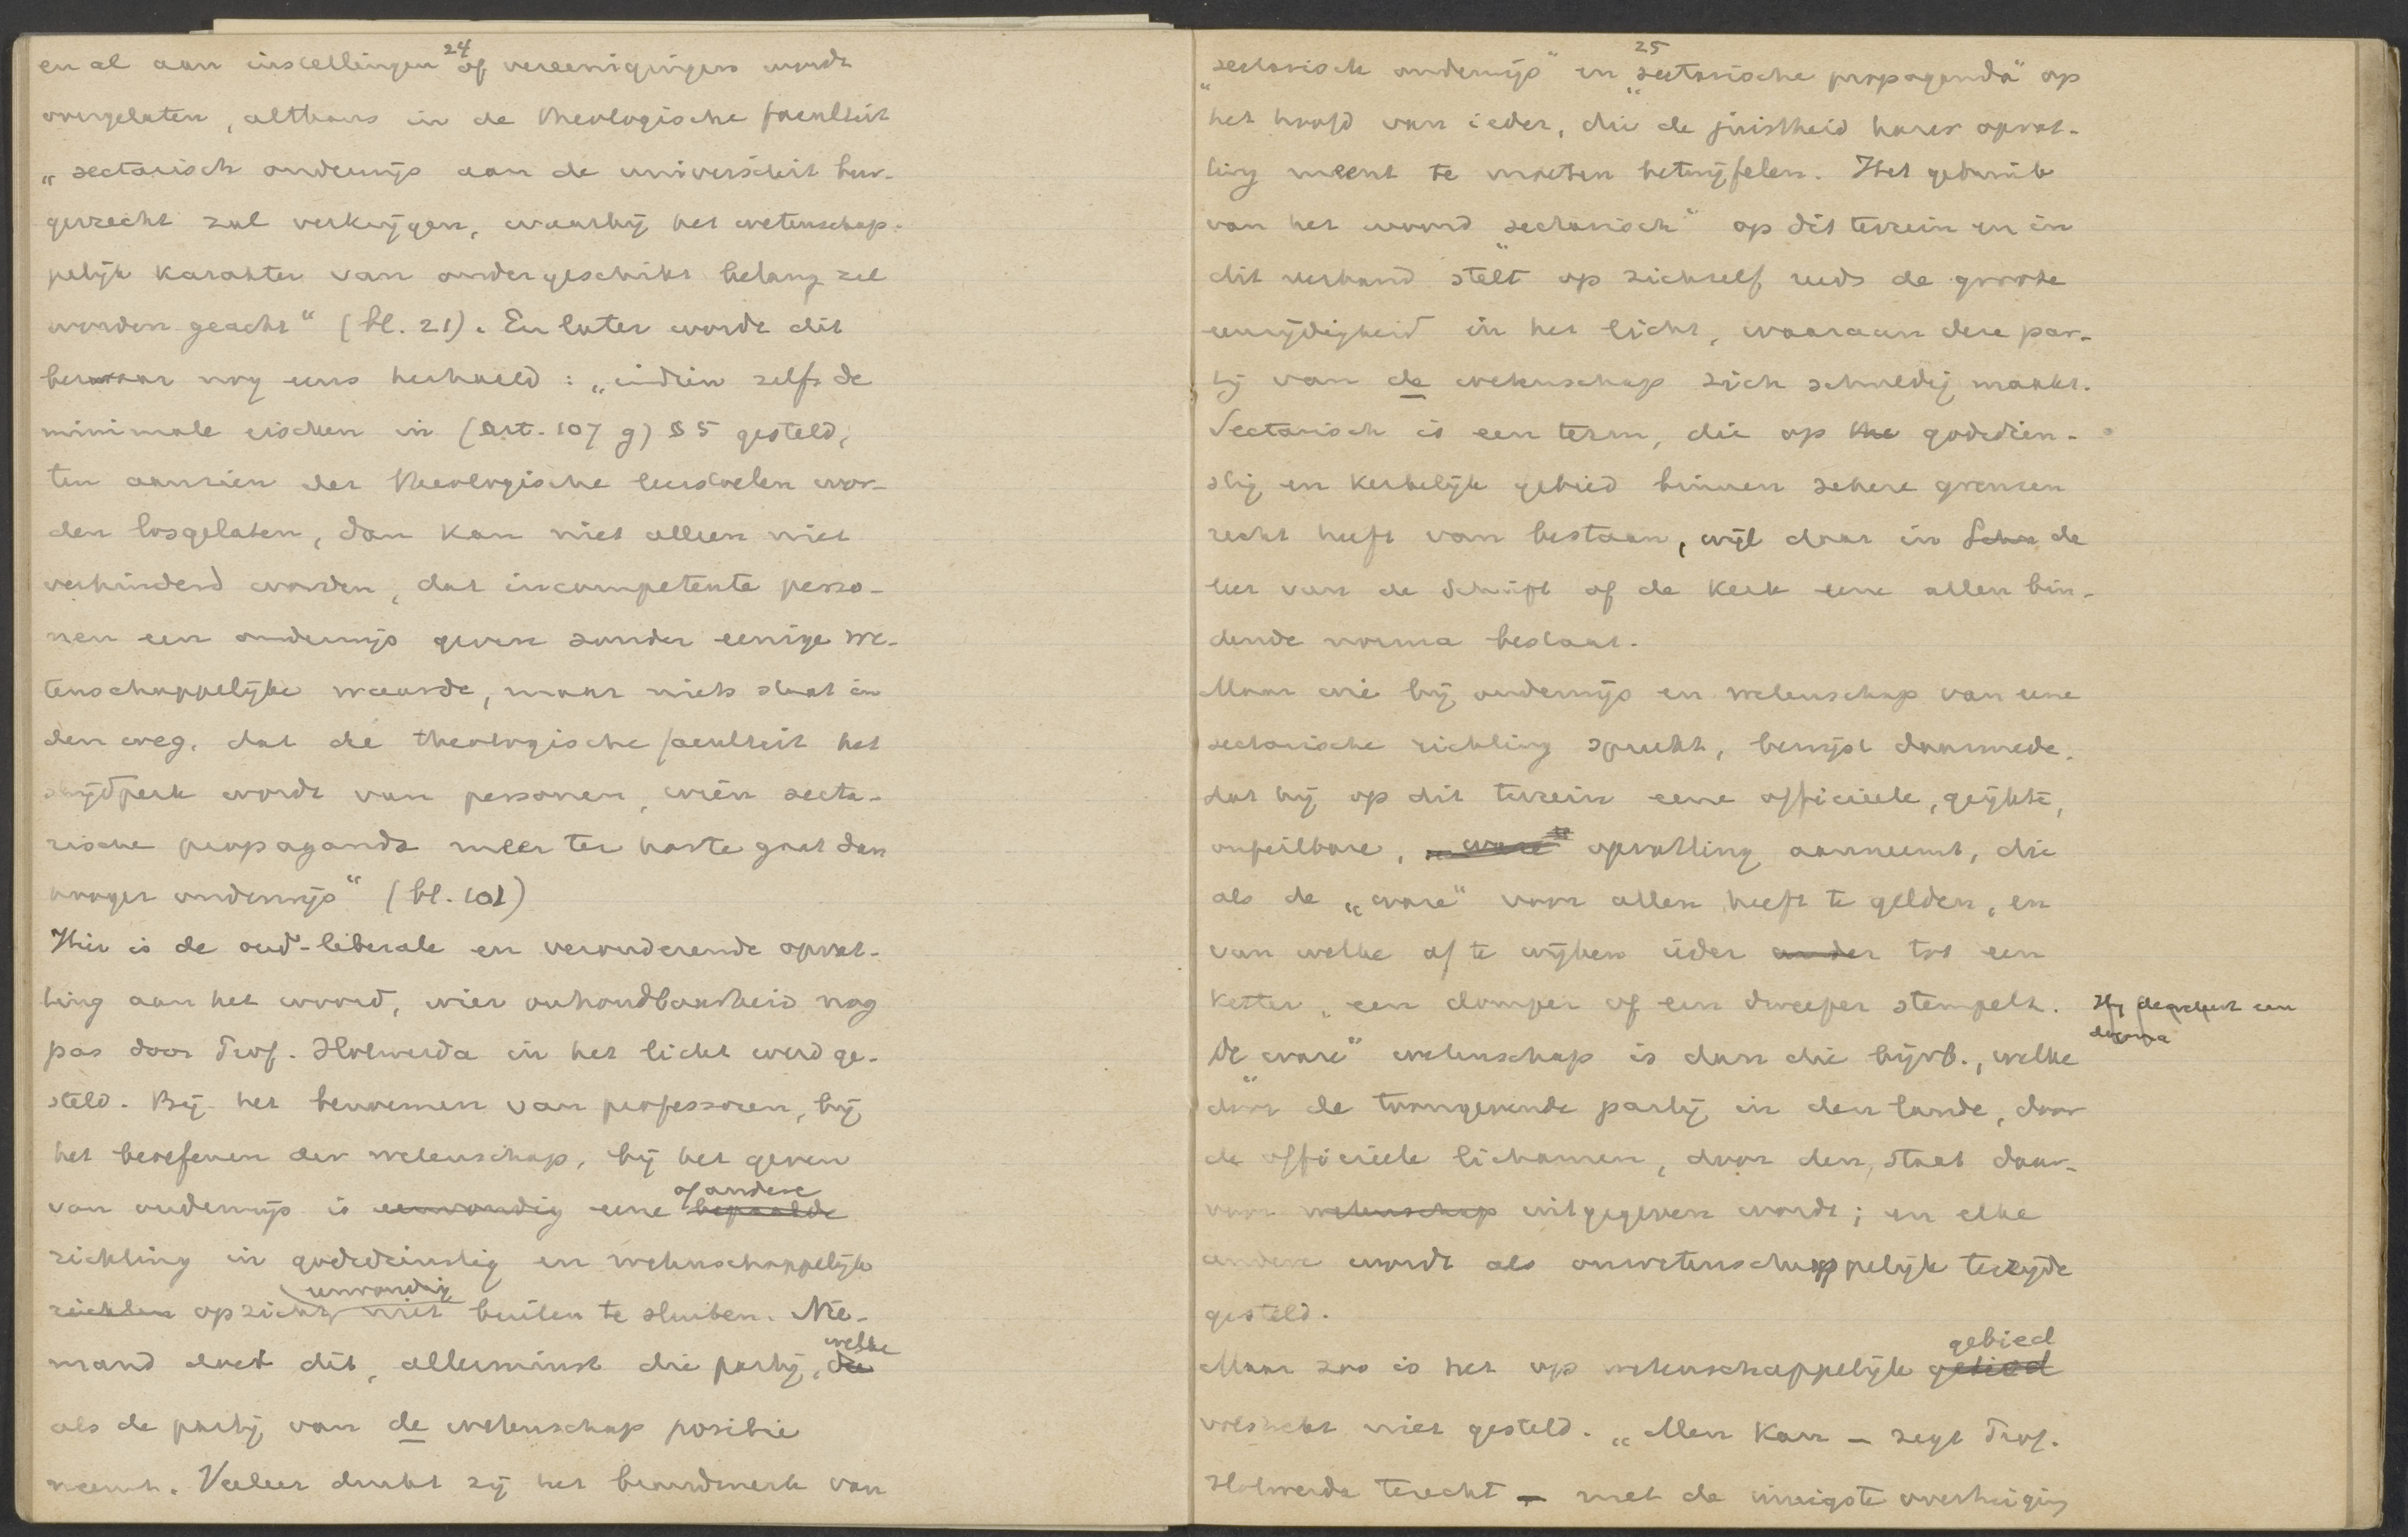 24
en al aan instellingen of vereenigingen wordt
overgelaten, althans in de theologische faculteit
„sectarisch onderwijs aan de universiteit bur-
gerrecht zal verkrijgen, waarbij het wetenschap-
pelijk karakter van ondergeschikt belang zal
worden geacht“ (bl. 21). En later wordt dit
bezwaar nog eens herhaald: „indien zelfs de
minimale eischen in (Art. 107 g) § 5 gesteld,
ten aanzien der theologische leerstoelen wor-
den losgelaten, dan kan niet alleen niet
verhinderd worden, dat incompetente perso-
nen een onderwijs geven zonder eenige we-
tenschappelijke waarde, maar niets staat in
den weg, dat de theologische faculteit het
strijdperk wordt van personen, wien secta-
rische propaganda meer ter harte gaat dan
hooger onderwijs“ (bl. 101)
Hier is de oud-liberale en verouderende opvat-
ting aan het woord, wier onhoudbaarheid nog
pas door Prof. Holwerda in het licht werd ge-
steld. Bij het benoemen van professoren, bij
het beoefenen der wetenschap, bij het geven
of andere
van onderwijs is eenvoudig eene bepaalde
richting in godsdienstig en wetenschappelijk
eenvoudig
opzicht niet buiten te sluiten. Nie-
welke
mand doet dit, allerminst die partij, die
als de partij van de wetenschap positie
neemt. Veeleer drukt zij het brandmerk van
25
„sectarisch onderwijs“ en „sectarische propaganda“ op
het hoofd van ieder, die de juistheid harer opvat-
ting meent te moeten betwijfelen. Het gebruik
van het woord „sectarisch“ op dit terrein en in
dit verband stelt op zichzelf reeds de groote
eenzijdigheid in het licht, waaraan deze par-
tij van de wetenschap zich schuldig maakt.
Sectarisch is een term, die op the godsdien-
stig en kerkelijk gebied binnen zekere grenzen
recht heeft van bestaan, wijl daar in Schr de
leer van de Schrift of de Kerk eene allen bin-
dende norma bestaat.
Maar wie bij onderwijs en wetenschap van eene
sectarische richting spreekt, bewijst daarmede,
dat hij op dit terrein eene officieele, geijkte,
onfeilbare, ware opvatting aanneemt, die
als de „ware“ voor allen heeft te gelden, en
van welke af te wijken ieder ander tot een
ketter, een domper of een dweeper stempelt. Hij decreteert een
dogma
De „ware“ wetenschap is dan die bijvb., welke
door de toongevende partij in den lande, door
de officieele lichamen, door den staat daar-
voor wetenschap uitgegeven wordt; en elke
andere wordt als onwetenschappelijk terzijde
gesteld.
gebied
Maar zoo is het op wetenschappelijk gebied
volstrekt niet gesteld. „Men kan — zegt Prof.
Holwerda terecht — met de innigste overtuiging